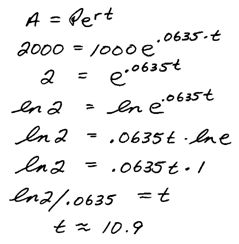 A = Pe^rt
2000 = 1000e^.0635·t
2 = e^.0635t
ln2 = ln e^.0635t
ln2 = .0635t · ln e
ln2 = .0635t · 1
ln2/.0635 = t
t ≈ 10.9